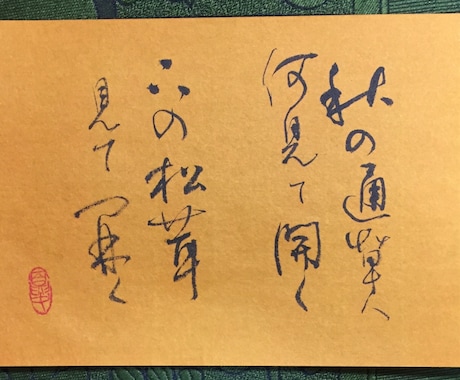 秋の通草ハ
何見て開く
下の松茸
見て開く